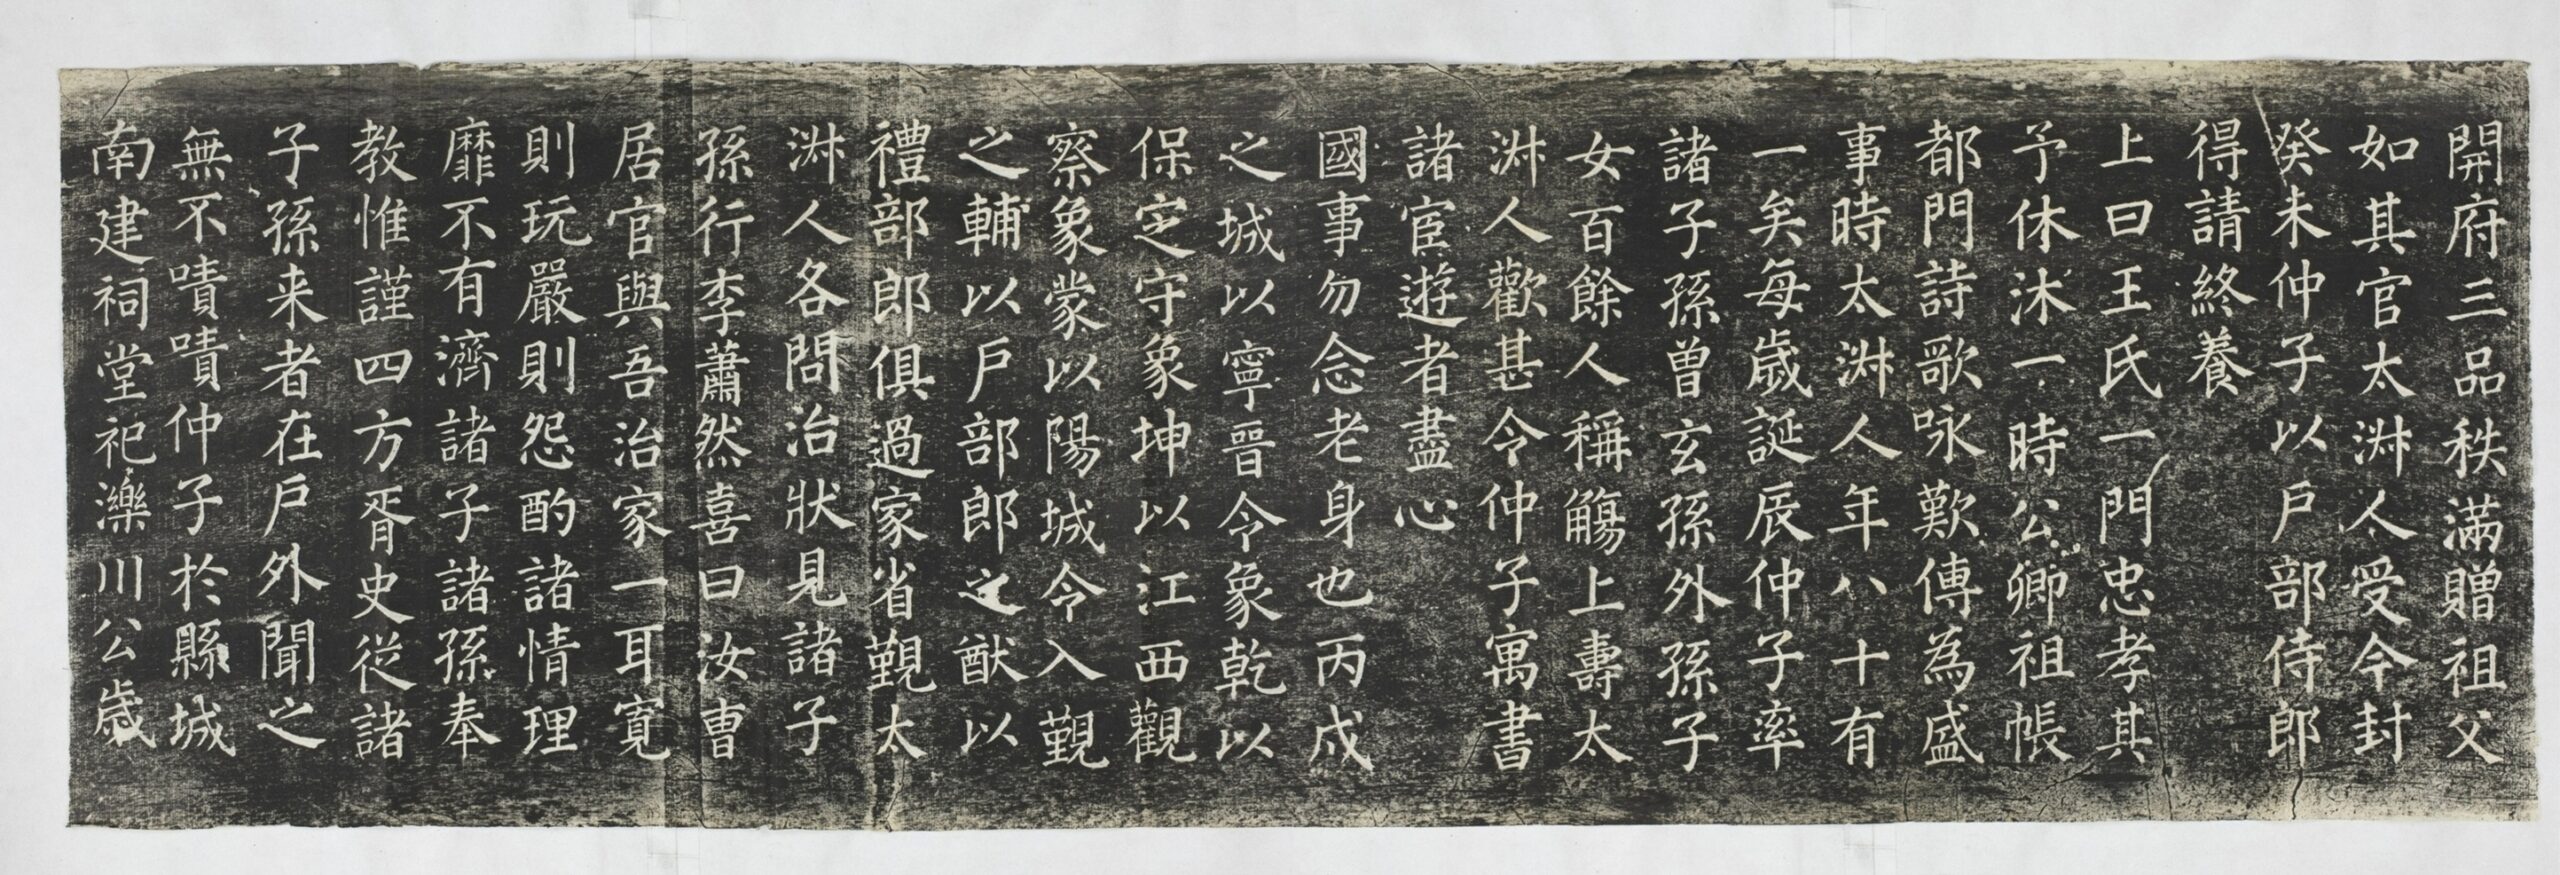 開府三品秩滿贈祖父
如其官太淋人受今封
癸未仲子以戶部侍郎
得請終養
上曰王氏一門忠孝其
予休沐一時公卿祖帳
都門詩歌咏歎傳為盛
事時太淋人年八十有
一矣每歲誕辰仲子率
諸子孫曾玄孫外孫子
女百餘人稱觴上壽太
淋人歡甚令仲子寓書
諸宦遊者盡心
國事勿念老身也丙戌
之城以寧晉令象乾以
保定守象坤以江西觀
察象蒙以陽城令入覲
之輔以戶部郎之猷以
禮部郎俱過家省覲太
淋人各問治狀見諸子
孫行李蕭然喜曰汝曹
居官與吾治家一耳寬
則玩嚴則怨酌諸情理
靡不有濟諸子諸孫奉
教惟謹四方胥史從諸
子孫来者在戶外聞之
無不嘖嘖仲子於縣城
南建祠堂祀濼川公歲